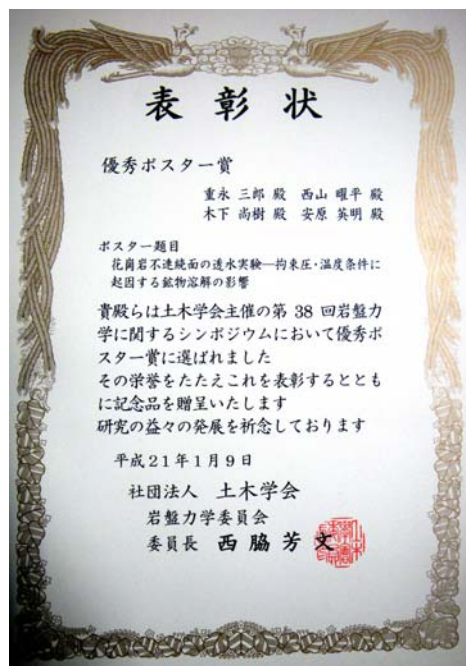 表彰状
優秀ポスター賞
重永 三郎 殿 西山 曜平 殿
木下 尚樹 殿 安原 英明 殿
ポスター題目
花崗岩不連続面の透水実験―拘束圧・温度条件に
起因する鉱物溶解の影響
貴殿らは土木学会主催の第 38 回岩盤力
学に関するシンポジウムにおいて優秀ポ
スター賞に選ばれました
その栄誉をたたえこれを表彰するととも
に記念品を贈呈いたします
研究の益々の発展を祈念しております
平成21年1月9日
社団法人 土木学会
岩盤力学委員会
委員長 西脇芳文